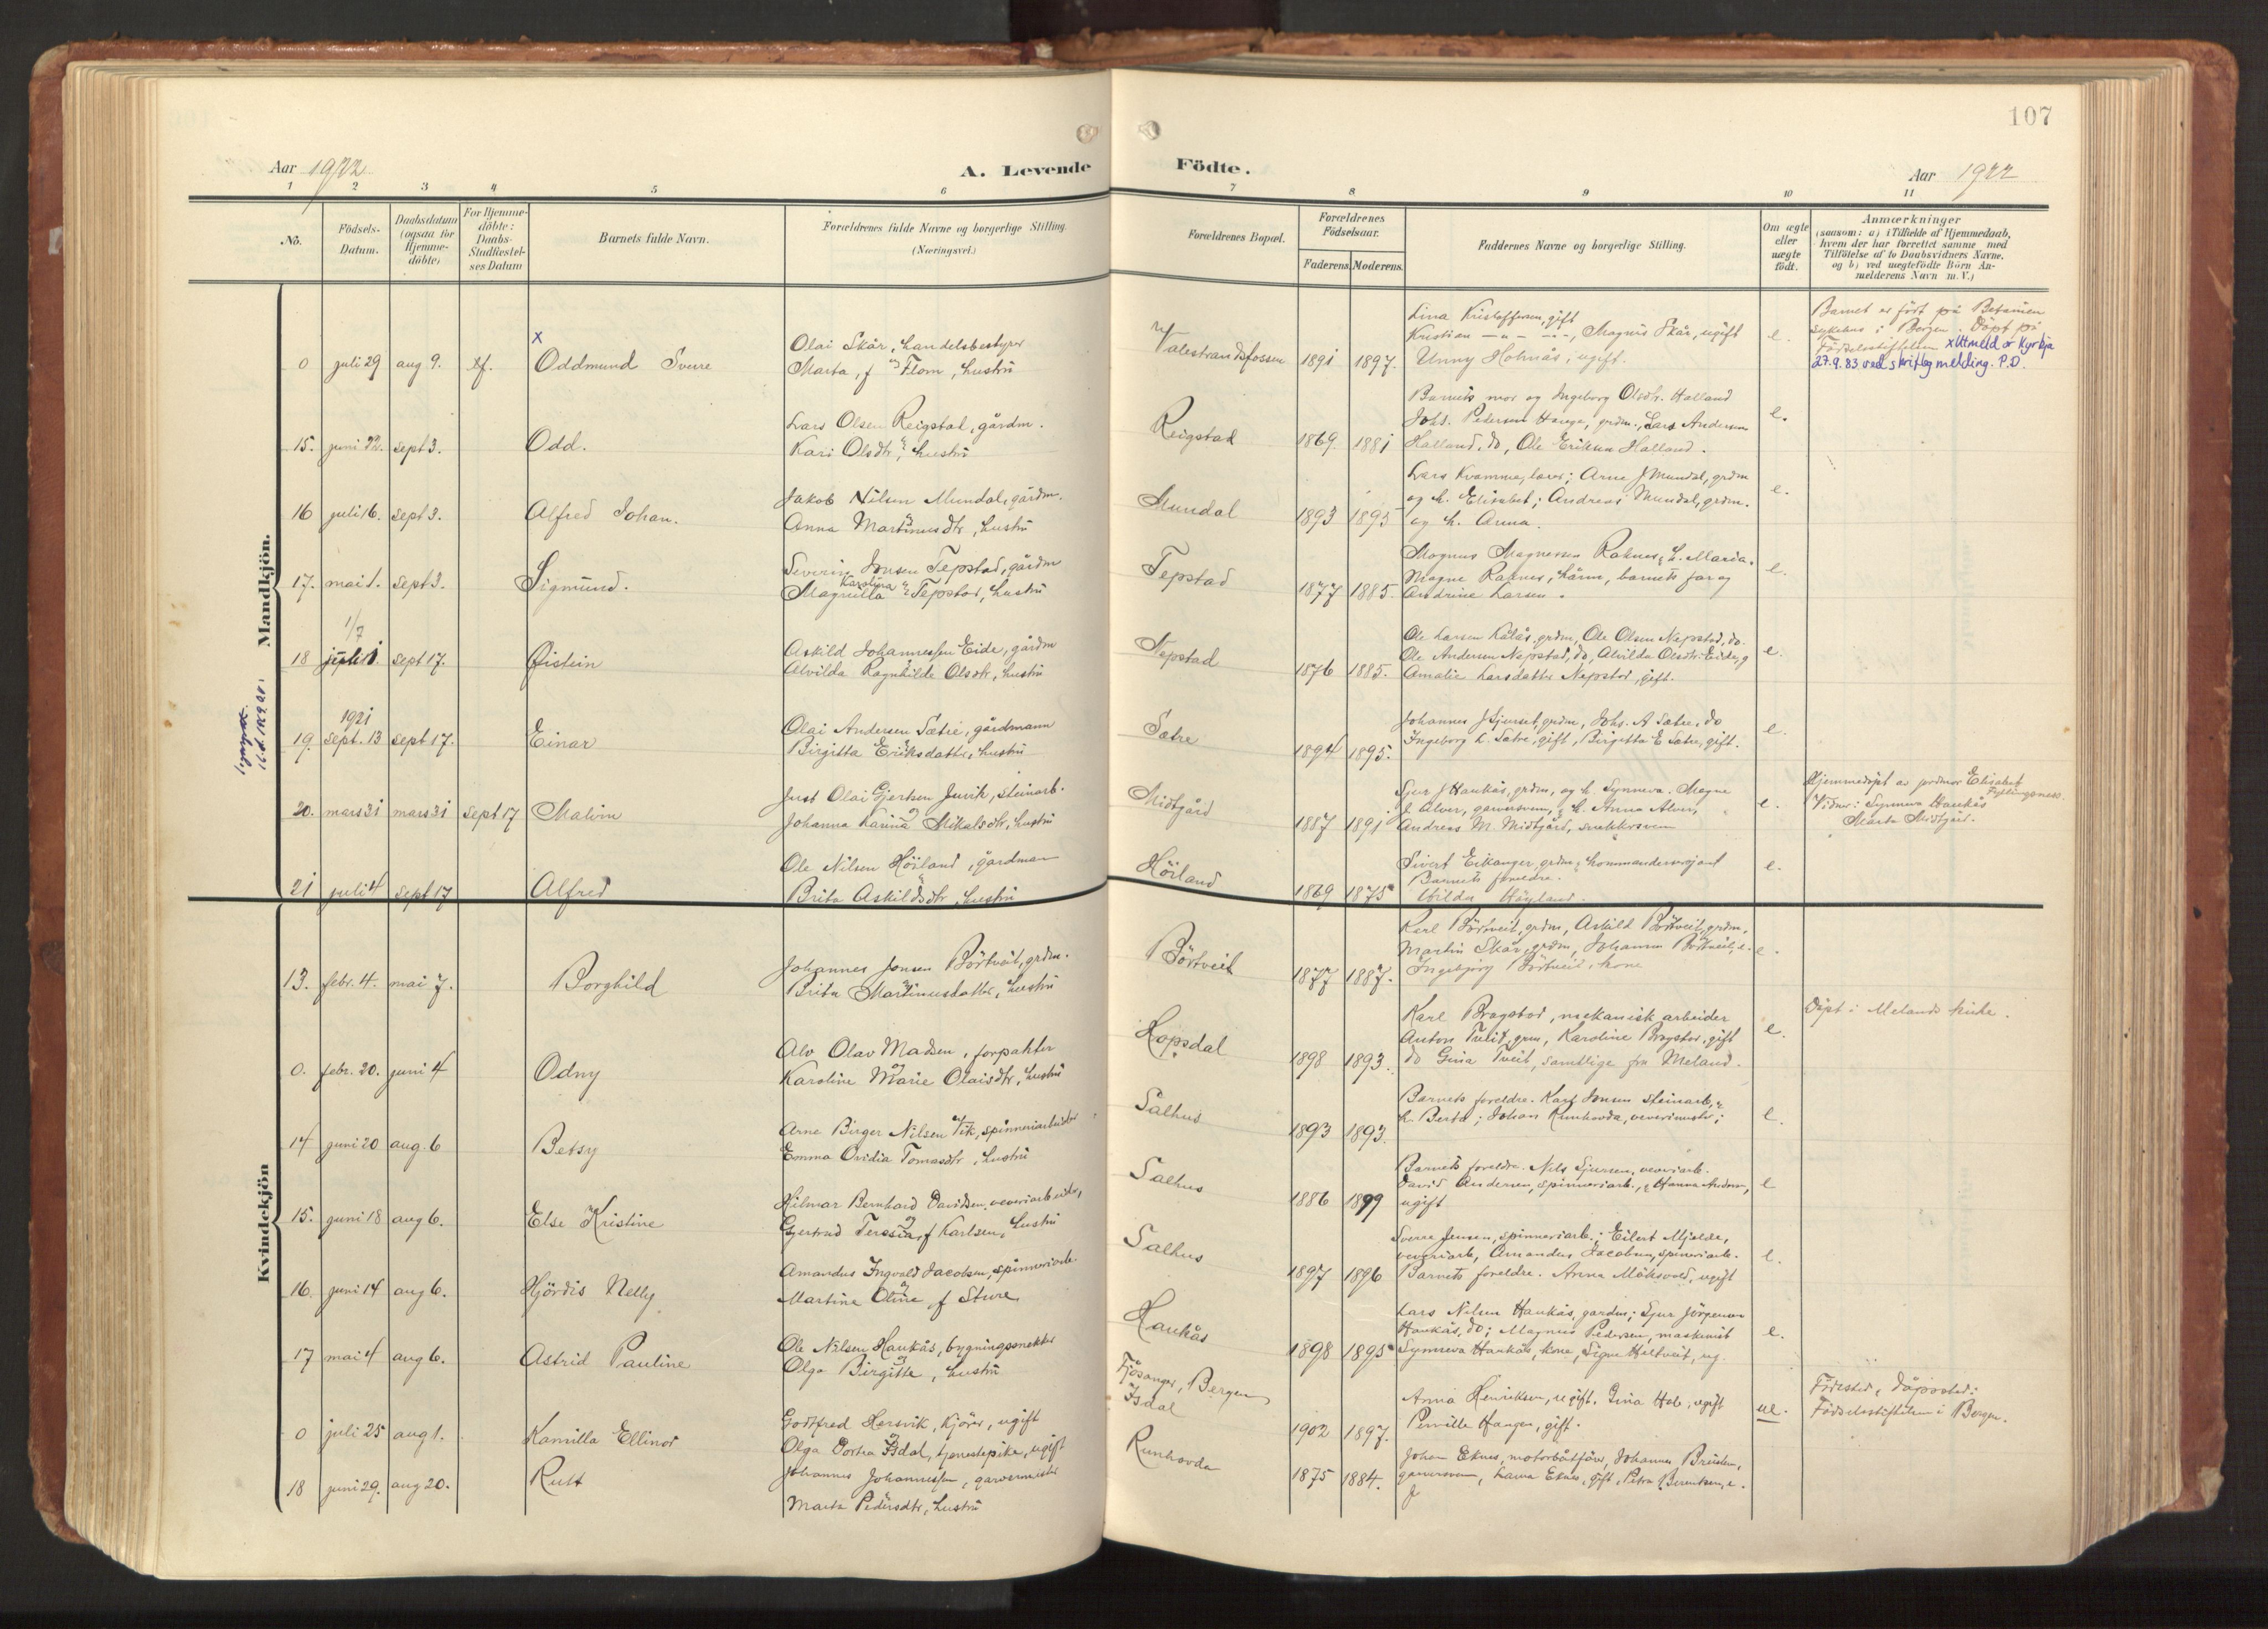 107
Aar 1922
A. Levende
Födte.
Aar 1922
1 2 3 4 5 6 7 8 9 10 11
No.
Födsels-
Datum.
Daabsdatum
(ogsaa for
Hjemme-
döbte)
For Hjemme-
döbte:
Daabs-
Stadfæstel-
ses Datum
Barnets fulde Navn.
Forældrenes fulde Navne og borgerlige Stilling
(Næringsvei.)
Forældrenes Bopæl.
Forældrenes
Födselsaar.
Faderens. Moderens.
Faddernes Navne og borgerlige Stilling.
Om ægte
eller
uægte
födt.
Anmærkninger
(saasom: a) i Tilfælde af Hjemmedaab,
hvem der har forrettet samme med
Tilföielse af to Daabsvidners Navne.
og b) ved uægtefödte Börn An-
melderens Navn m.V.)
Mandkjön.
x
0 juli 29 aug 9. Oddmund Sverre
Olai Skår, handelsbestyrer
Marta, f Flom, hustru
Valestrandsfossen 1891 1897.
Lina Kristoffersen, gift
Kristian — " — " —, Magnus Skår, ugift
Unny Holmås, ugift.
e.
Barnet er født på Betanien
sykehus i Bergen. Døpt på
Fødselsstiftelsen x Utmeld or Kyrkja
27.9.83 ved skriftleg melding. P.D.
15. juni 22. sept 3. Odd.
Lars Olsen Reigstad, gårdm.
Kari Olsdtr, hustru
Reigstad 1869 1881
Barnets mor og Ingeborg Olsdtr. Halland
Johs. Pedersen Hauge, grdm., Lars Andersen
Halland, do, Ole Eriksen Halland.
e.
16 juli 16. sept 3. Alfred Johan.
Jakob Nilsen Mundal, gårdm.
Anna Martinusdtr, hustru
Mundal 1893 1895
Lars Kvamme, lærer; Arne J Mundal, grdm
og h. Elisabet; Andreas Mundal, grdm.
og h. Anna.
e.
17. mai 1. sept 3. Sigmund.
Severin Jonsen Tepstad, gårdm
Karolina
Magnilla Tepstad, hustru
Tepstad 1877 1885.
Magnus Magnesen Raknes, h. Maria.
Magne Raknes, barnets far og
Andrine Larsen.
e.
1/7
18 sept 17. Øistein
Askild Johannessen Eide, gårdm
Alvilda Ragnhilde Olsdtr, hustru
Nepstad 1876 1885.
Ole Larsen Kålås, grdm, Ole Olsen Nepstad, do.
Ole Andersen Nepstad, do, Alvilda Olsdtr. Eide, g
Amalie Larsdatter Nepstad, gift.
e.
1921
19. sept. 13 sept 17. Einar
Olai Andersen Sætre, gårdmann
Birgitta Eriksdatter, hustru
Sætre 1894 1895.
Johannes J Gjerset, grdm, Johs. A Sætre, do
Ingeborg L. Sætre, gift, Birgitta E Sætre, gift.
e.
20. mars 31 mars 31 sept 17 Malvin
Just Olai Gjertsen Juvik, steinarb.
Johanna Karina Mikalsdtr, hustru
Midtgård 1887 1891
Sjur J Haukås, grdm, og h Synneva. Magne
J. Alver, garversvenn, h. Anna Alver,
Andreas M. Midtgård, snekkersvenn
e.
Hjemmedøpt av jordmor Elisabet
Fyllingsnes.
Vidner: Synneva Haukås
Marta Midtgård.
21 juli 4 sept 17 Alfred
Ole Nilsen Höiland, gårdman
Brita Askildsdtr, hustru
Höiland 1869 1875
Sivert Eikanger, grdm, kommandersersjant
Barnets foreldre.
Hilda Høyland.
e.
Kvindekjön
13. febr. 4. mai 7. Borghild
Johannes Jonsen Börtveit, grdm.
Brita Martinusdatter, hustru
Börtveit 1877 1887.
Karl Börtveit, grdm, Askild Börtveit, grdm,
Martin Skår, grdm, Johanna Börtveit,
Ingebjörg Börtveit, kone
e.
0. febr. 20. juni 4 Odny
Alv Olav Madsen, forpakter
Karoline Marie Olaisdtr, hustru
Hopsdal 1898 1893.
Karl Bragstad, mekanisk arbeider
Anton Tveit, grm, Karoline Bragstad, gift
do Gina Tveit, samtlige fra Meland.
e.
Døpt i Melands kirke.
14 juni 20 aug. 6 Betsy
Arne Birger Nilsen Vik, spinneriarbeider
Emma Ovidia Tomasdtr, hustru
Salhus 1893 1893.
Barnets foreldre. Karl Jonsen steinarb,
h. Berta; Johan Runhovda, vevermester;
e.
15. juni 18 aug 6. Else Kristine
Hilmar Bernhard Davidsen, veveriarbeider,
Gjertrud Teresia, f Karlsen, hustru
Salhus 1886 1899
Barnets foreldre. Nils Sjursen, veveriarb.
David Andersen, spinneriarb., Hanna Andersen,
ugift
e
16. juni 14 aug 6. Hjördis Nelly
Amandus Ingvald Jacobsen, spinneriarb.
Martine Oline, f Sture
Salhus 1897 1896
Sverre Jensen, spinneriarb.; Eilert Mjelde,
veveriarb, Amandus Jacobsen, spinneriarb.
Barnets foreldre. Anna Måksvold, ugift
e.
17 mai 4 aug 6. Astrid Pauline
Ole Nilsen Haukås, bygningssnekker
Olga Birgitte, hustru
Haukås 1898 1895
Lars Nilsen Haukås, gardm; Sjur Jörgensen
Haukås, do; Magnus Pedersen, maskinist
Synneva Haukås, kone, Signe Hiltveit, ug.
e.
0 juli 25 aug 1. Kamilla Ellinor
Godtfred Hersvik, kjører, ugift
Olga Dortea Isdal, tjenestepike, ugift
Fjösanger, Bergen
Isdal 1902 1897.
Anna Henriksen, ugift. Gina Hole, ugift
Pernille Haugen, gift.
ue.
Fødested, døpested:
Fødselsstiftelsen i Bergen.
18 juni 29. aug 20. Rutt
Johannes Johannessen, garvermester
Marta Pedersdtr, hustru
Runhovda 1875 1884.
Johan Eknes, motorbåtfører, Johannes Breistein,
garversvenn, Laura Eknes, gift, Petra Berntsen, e.